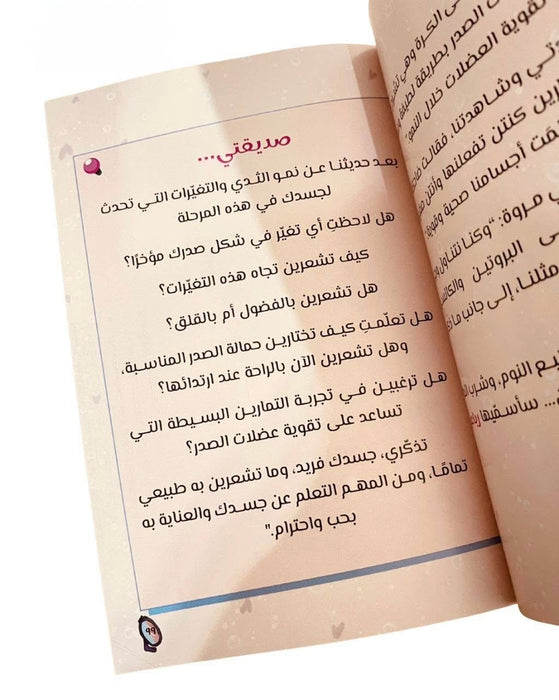 صديقتي...
بعد حديثنا عن نمو الثدي والتغيّرات التي تحدث
لجسدك في هذه المرحلة
هل لاحظتِ أي تغيّر في شكل صدرك مؤخرًا؟
كيف تشعرين تجاه هذه التغيّرات؟
هل تشعرين بالفضول أم بالقلق؟
هل تعلّمتِ كيف تختارين حمالة الصدر المناسبة،
وهل تشعرين الآن بالراحة عند ارتدائها؟
هل ترغبين في تجربة التمارين البسيطة التي
تساعد على تقوية عضلات الصدر؟
تذكّري، جسدك فريد، وما تشعرين به طبيعي
تمامًا، ومن المهم التعلم عن جسدك والعناية به
بحب واحترام."
٩٩
ى الكرة وهي
ت الصدر بطريقة
تقوية العضلات خلال النمو"
وشاهدتنا، فقالت
كنتن تفعلنها وأنتن
أجسامنا صحية وقوية
ي مروة: "وكنا نتناول
البروتين
مثلنا، إلى جانب ما
ع النوم، وشرب
... سأسقيها